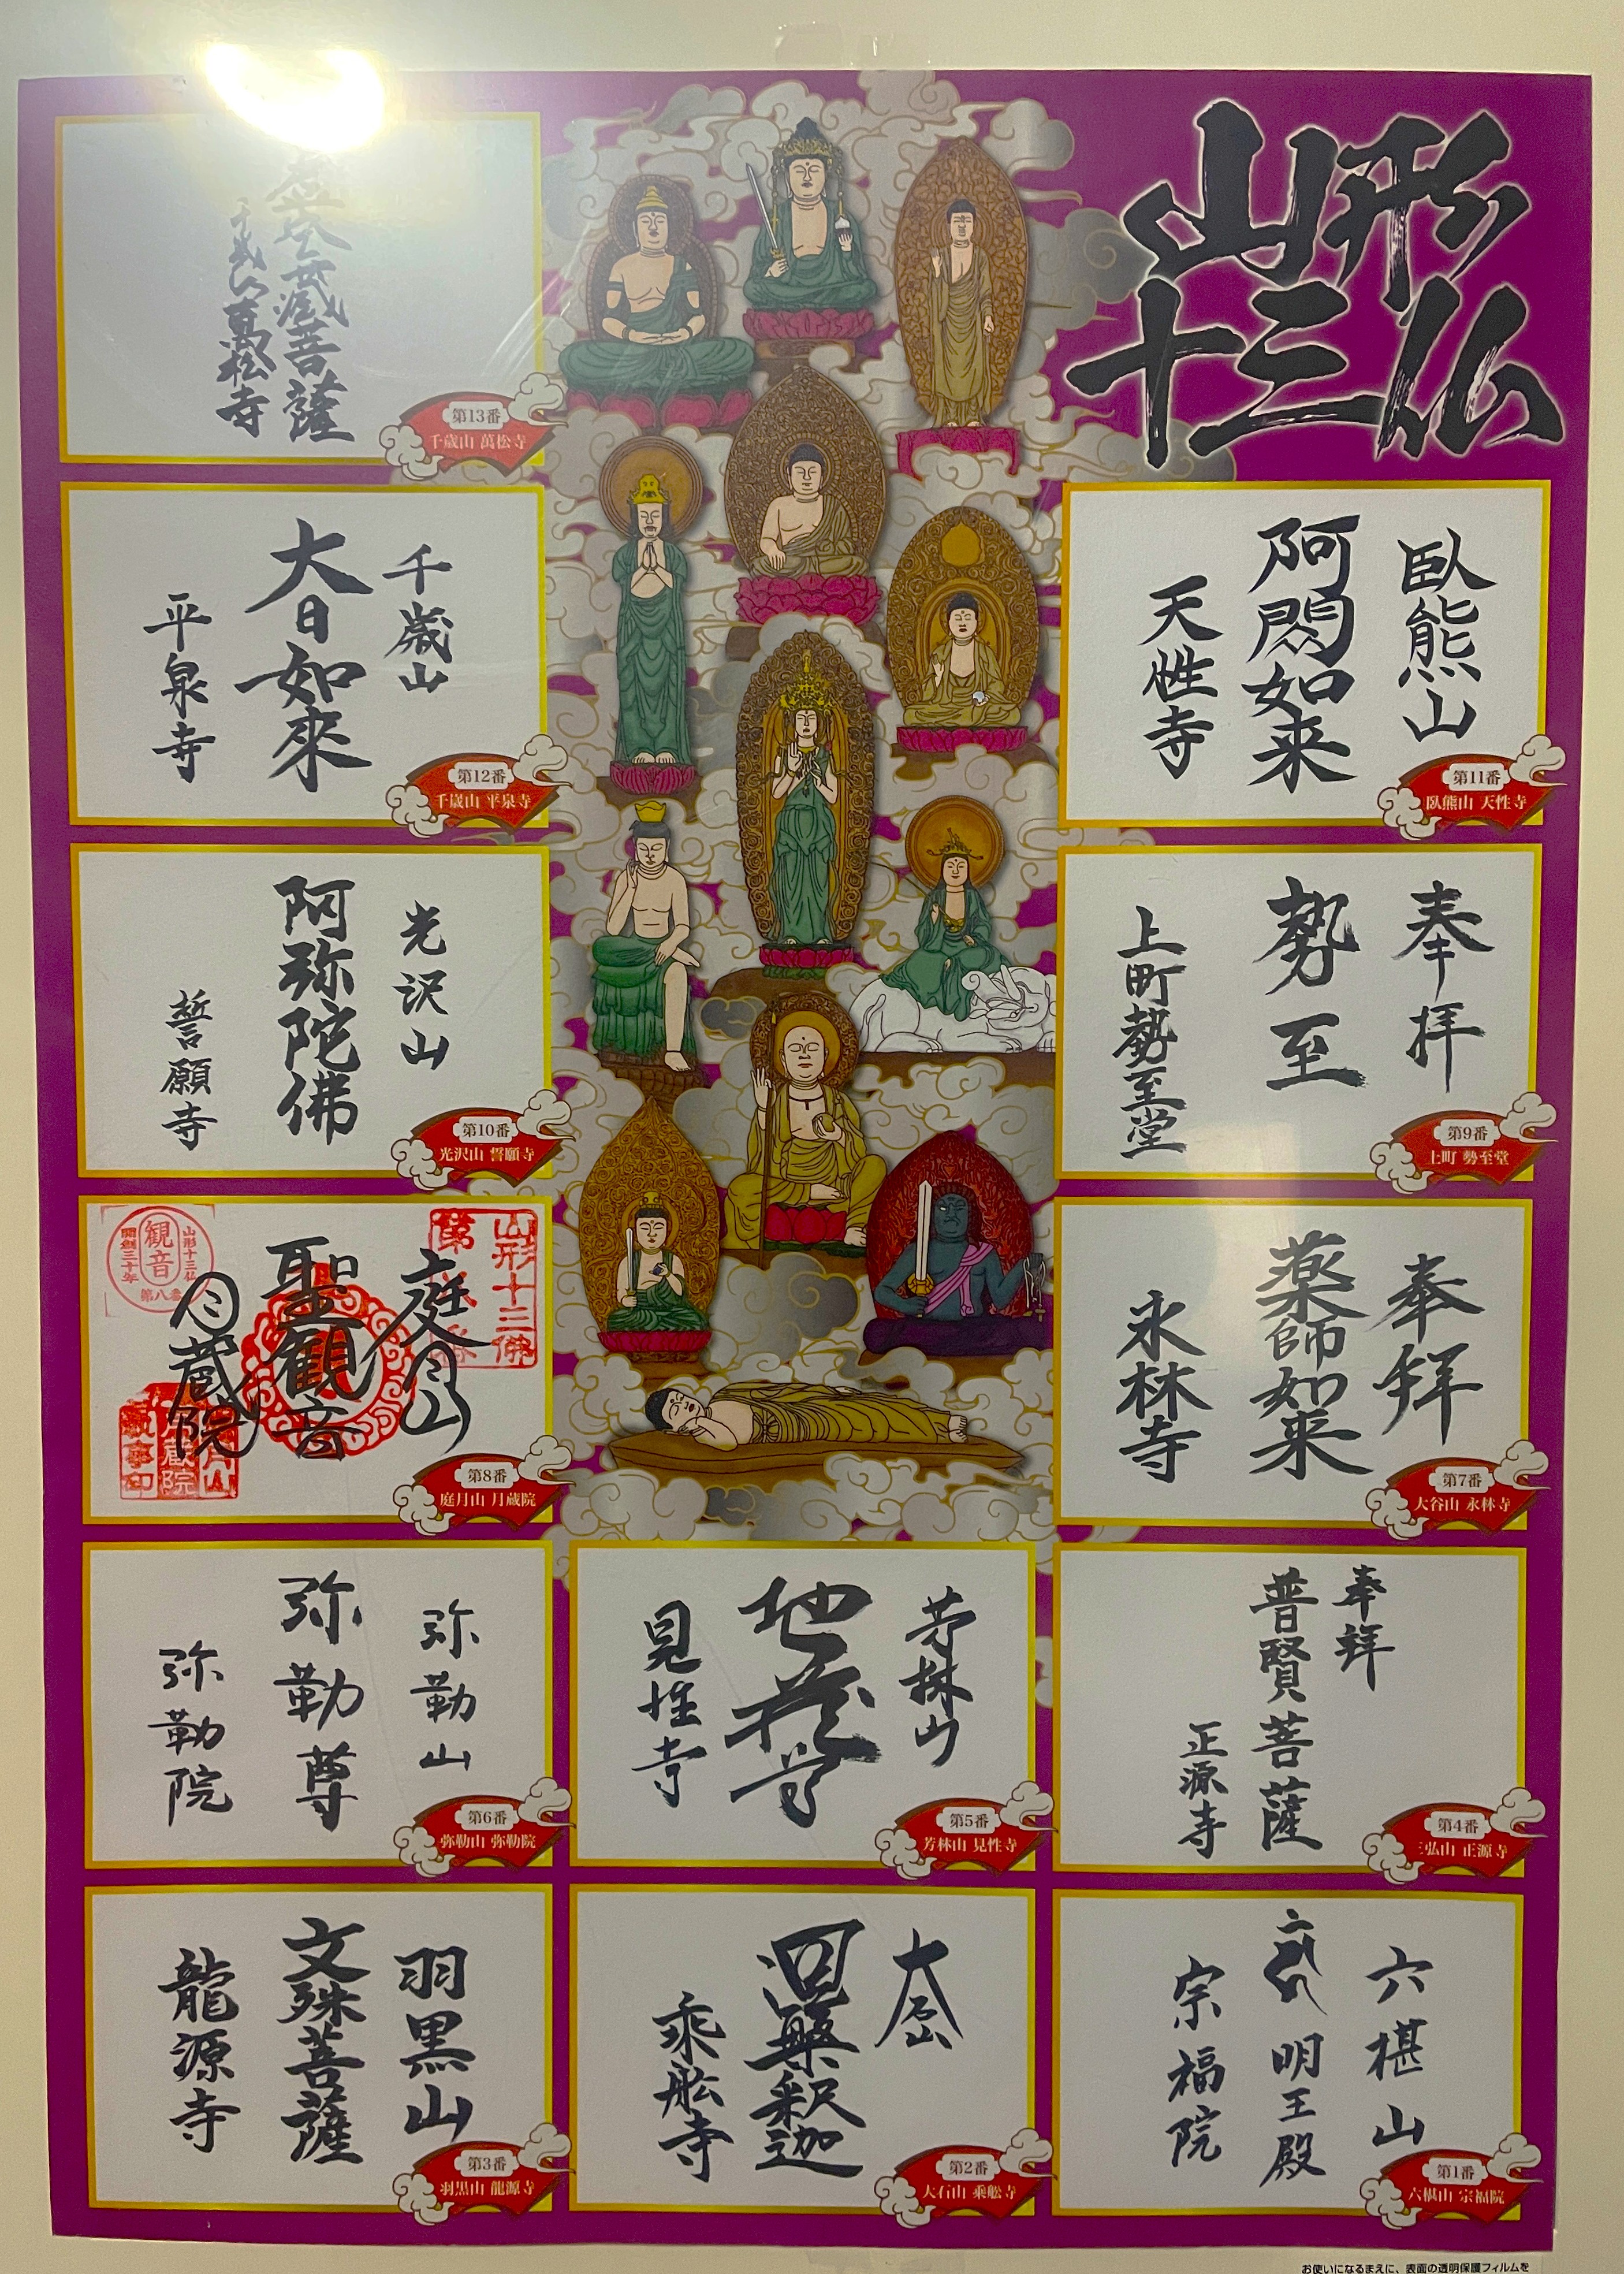 山形
十三仏
臥熊山
阿閦如来
天性寺
第11番
臥熊山 天性寺
奉拝
勢至
上町勢至堂
第9番
上町 勢至堂
奉拝
薬師如来
永林寺
第7番
大谷山 永林寺
奉拝
普賢菩薩
正源寺
第4番
三弘山 正源寺
六椹山
明王殿
宗福院
第1番
六椹山 宗福院
芳林山
地蔵尊
見性寺
第5番
芳林山 見性寺
涅槃釈迦
乘舩寺
第2番
大石山 乗舩寺
虚空蔵菩薩
千歳山萬松寺
第13番
千歳山 萬松寺
千歳山
大日如來
平泉寺
第12番
千歳山 平泉寺
光沢山
阿弥陀佛
誓願寺
第10番
光沢山 誓願寺
山形十三佛
庭月山
聖観音
月蔵院
山形十三仏
観音
開創三十年
第八番
第8番
庭月山 月蔵院
弥勒山
弥勒尊
弥勒院
第6番
弥勒山 弥勒院
羽黒山
文殊菩薩
龍源寺
第3番
羽黒山 龍源寺
お使いになるまえに、表面の透明保護フィルムを